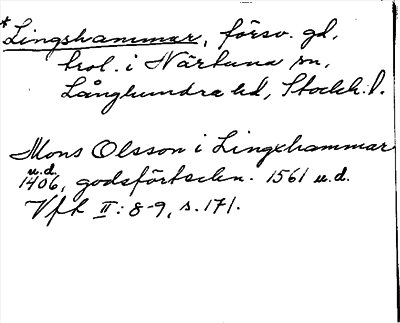 *Lingshammar, försv. gd,
trol. i Närtuna sn,
Långhundra hd, Stockh. l.
Mons Olsson i Lingxhammar
u.d.
1406, godsförteckn. 1561 u.d.
Vft II: 8-9, s. 171.